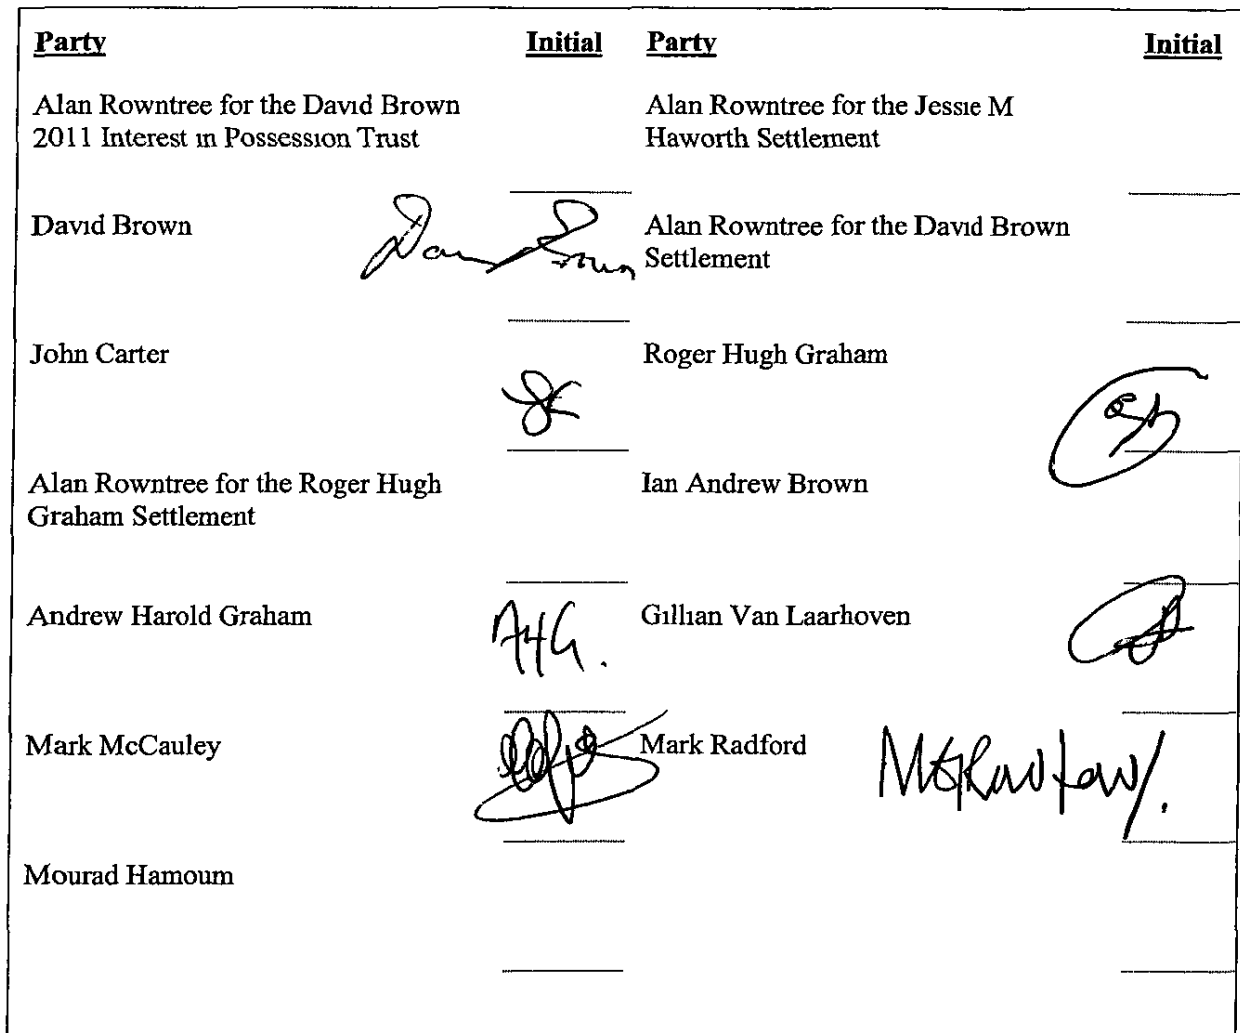 Party Initial Party Initial
Alan Rowntree for the David Brown
2011 Interest in Possession Trust
Alan Rowntree for the Jessie M
Haworth Settlement
David Brown
Alan Rowntree for the David Brown
Settlement
John Carter
Roger Hugh Graham
Alan Rowntree for the Roger Hugh
Graham Settlement
Ian Andrew Brown
Andrew Harold Graham AHG.
Gillian Van Laarhoven
Mark McCauley
Mark Radford
Mourad Hamoum